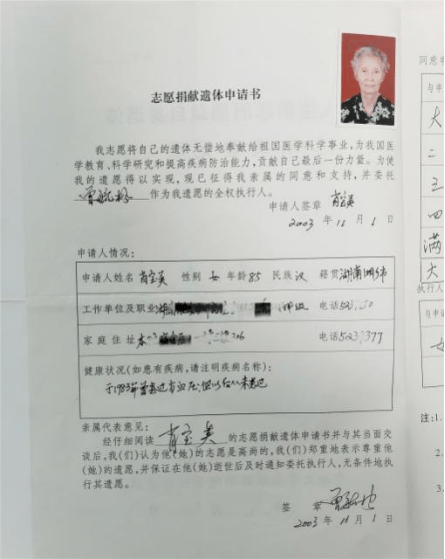 志愿捐献遗体申请书
我志愿将自己的遗体无偿地奉献给祖国医学科学事业,为我国医
学教育、科学研究和提高疾病防治能力,贡献自己最后一份力量。为使
我的遗愿得以实现,现已征得我亲属的同意和支持,并委托
作为我遗愿的全权执行人。
申请人签章 肖宝英
2003 年 11 月 1 日
申请人情况:
申请人姓名 肖宝英 性别 女 年龄 85 民族 汉 籍贯 湖南
工作单位及职业 电话
家庭住址 电话
健康状况(如患有疾病,请注明疾病名称):
于1983年曾患过
亲属代表意见:
经仔细阅读 肖宝英 的志愿捐献遗体申请书并与其当面交
谈后,我(们)认为他(她)的志愿是高尚的,我(们)郑重地表示尊重他
(她)的遗愿,并保证在他(她)逝世后及时通知委托执行人,无条件地执
行其遗愿。
签 章
2003 年 11 月 1 日
同意
与申
大
二
五
四
满
大
执行人
与申
女
注:1.
2.
3.